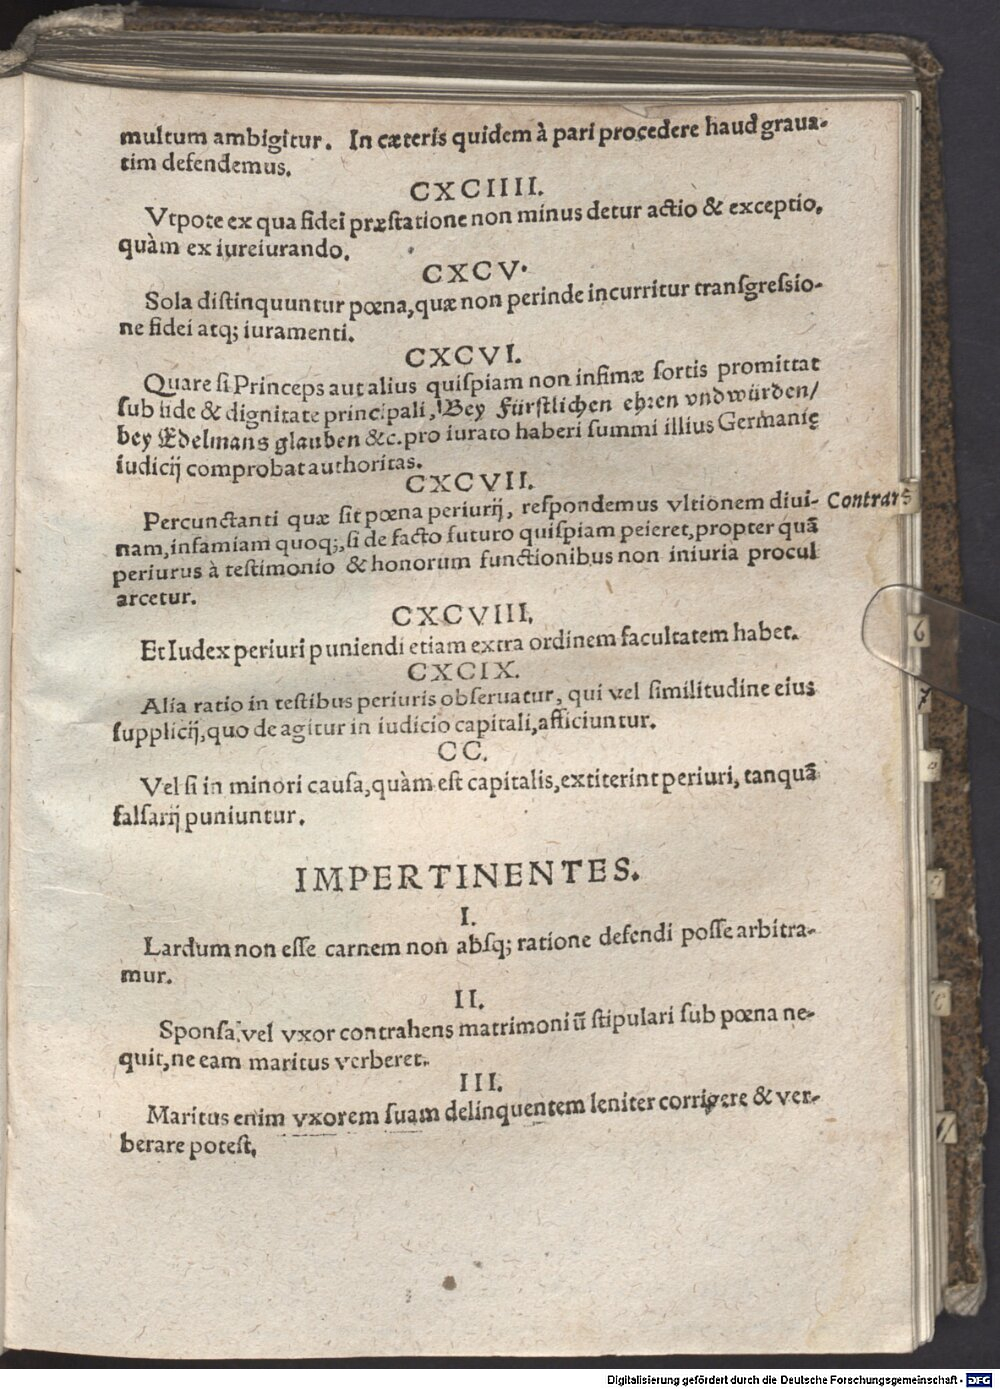 multum ambigitur. In cæteris quidem à pari procedere haud graua-
tim defendemus.
CXCIIII.
Vtpote ex qua fidei præstatione non minus detur actio & exceptio,
quàm ex iureiurando.
CXCV.
Sola distinquuntur pœna, quæ non perinde incurritur transgressio-
ne fidei atq; iuramenti.
CXCVI.
Quare si Princeps aut alius quispiam non infimæ sortis promittat
sub fide & dignitate principali, Bey Fürstlichen ehren vnd würden/
bey Edelmans glauben &c. pro iurato haberi summi illius Germanię
iudicij comprobat authoritas.
CXCVII.
Percunctanti quæ sit pœna periurij, respondemus vltionem diui-
Contrari
nam, infamiam quoq;, si de facto futuro quispiam peieret, propter quã
periurus à testimonio & honorum functionibus non iniuria procul
arcetur.
CXCVIII.
Et Iudex periuri puniendi etiam extra ordinem facultatem habet.
6
CXCIX.
Alia ratio in testibus periuris obseruatur, qui vel similitudine eius
7
supplicij, quo de agitur in iudicio capitali, afficiuntur.
CC.
Vel si in minori causa, quàm est capitalis, extiterint periuri, tanquã
falsarij puniuntur.
IMPERTINENTES.
I.
Lardum non esse carnem non absq; ratione defendi posse arbitra-
mur.
II.
Sponsa, vel vxor contrahens matrimoniũ stipulari sub pœna ne-
quit, ne eam maritus verberet.
III.
Maritus enim vxorem suam delinquentem leniter corrigere & ver-
berare potest.
Digitalisierung gefördert durch die Deutsche Forschungsgemeinschaft - DFG